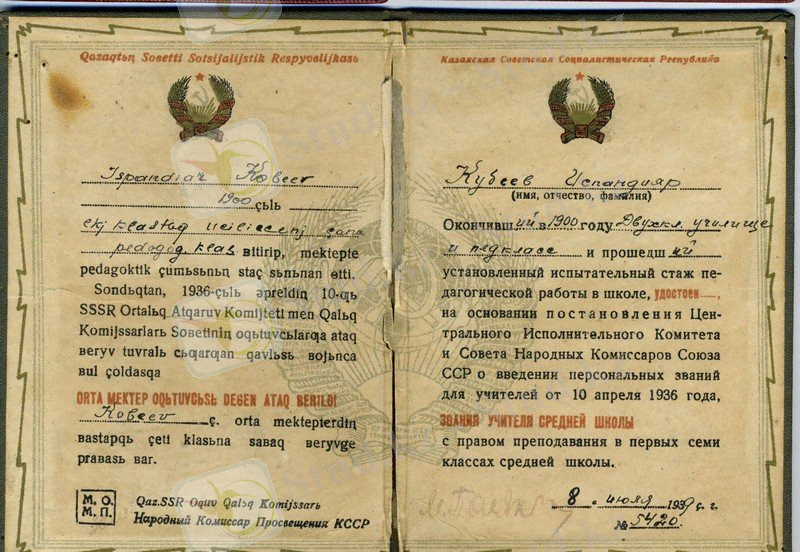 Qazaqtьꞑ Sovetti Sotsijalijstik Respyvɓlijkasь
Ispandiar Kɵbeev
1900 çьlь
ekj klastьq
pedagog. klas ʙitirip, mektepte
pedagoktik çumьsьnьꞑ staç sьnьnan ɵtti.
Sondьqtan, 1936-çьlь əpreldiꞑ 10-qь
SSSR Ortalьq Atqaruv Komijteti men Qalьq
Komijssarlarь Sovetiniꞑ oqьtuvcьlarƣa ataq
ʙeryv tuvralь cьƣarƣan qavlьsь ʙojьnca
ʙul çoldasqa
ORTA MEKTEP OQЬTUVCЬSЬ DEGEN ATAQ BERILDI
Kɵbeev ç. orta mektepterdiꞑ
ʙastapqь çeti klasьna saʙaq ʙeryvge
pravasь ʙar.
М. О.
М. П.
Qaz.SSR Oquv Qalьq Komijssarь
Народный Комиссар Просвещения КССР
Казакская Советская Социалистическая Республика
Кубеев Испандияр
(имя, отчество, фамилия)
Окончивший в 1900 году Двухкл. училище
и педклассе и прошедший
установленный испытательный стаж пе-
дагогической работы в школе, удостоен,
на основании постановления Цен-
трального Исполнительного Комитета
и Совета Народных Комиссаров Союза
ССР о введении персональных званий
для учителей от 10 апреля 1936 года,
ЗВАНИЯ УЧИТЕЛЯ СРЕДНЕЙ ШКОЛЫ
с правом преподавания в первых семи
классах средней школы.
8. июля 1939 ç. г.
№ 5420